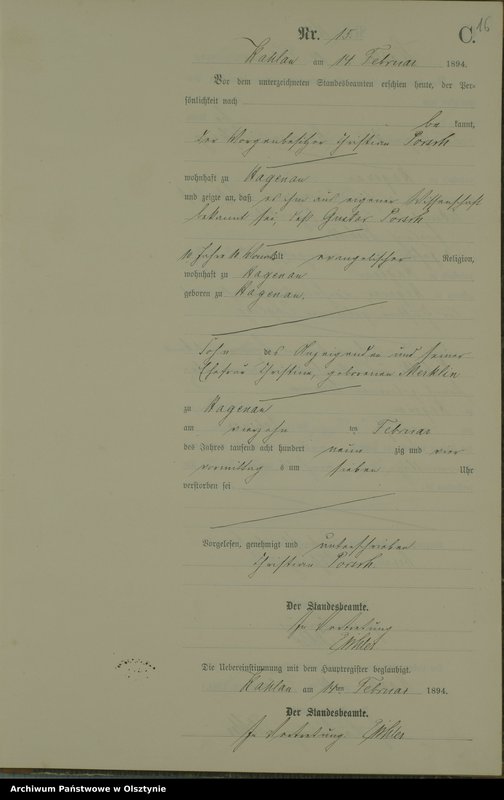 16
Nr. 15. C.
Kahlau am 14 Februar 1894.
Vor dem unterzeichneten Standesbeamten erschien heute, der Per-
sönlichkeit nach
be kannt,
der Christian Porsch
wohnhaft zu Hagenau
und zeigte an, daß es ihm aus eigener Wissenschaft
bekannt sei, daß Gustav Porsch
alt evangelischer Religion,
wohnhaft zu Hagenau
geboren zu Hagenau.
Sohn des Anzeigenden und seiner
Ehefrau Christine, geborenen Merklin
zu Hagenau
am vierzehn ten Februar
des Jahres tausend acht hundert neun zig und vier
vormittag s um sieben Uhr
verstorben sei
Vorgelesen, genehmigt und unterschrieben
Christian Porsch
Der Standesbeamte.
In Vertretung
Die Uebereinstimmung mit dem Hauptregister beglaubigt.
Kahlau am 14ten Februar 1894.
Der Standesbeamte.
In Vertretung
Archiwum Państwowe w Olsztynie